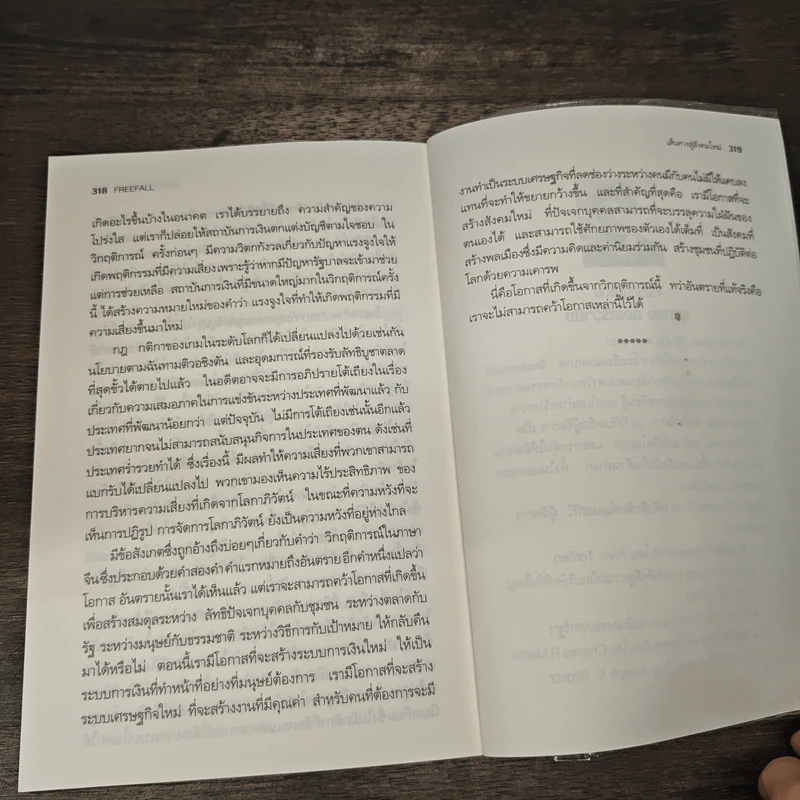 318 FREEFALL
เกิดอะไรขึ้นบ้างในอนาคต เราได้บรรยายถึง ความสำคัญของความ
โปร่งใส แต่เราก็ปล่อยให้สถาบันการเงินตกแต่งบัญชีตามใจชอบ ใน
วิกฤติการณ์ ครั้งก่อนๆ มีความวิตกกังวลเกี่ยวกับปัญหาแรงจูงใจให้
เกิดพฤติกรรมที่มีความเสี่ยงเพราะรู้ว่าหากมีปัญหารัฐบาลจะเข้ามาช่วย
แต่การช่วยเหลือ สถาบันการเงินที่มีขนาดใหญ่มากในวิกฤติการณ์ครั้ง
นี้ ได้สร้างความหมายใหม่ของคำว่า แรงจูงใจที่ทำให้เกิดพฤติกรรมที่มี
ความเสี่ยงขึ้นมาใหม่
กฎ กติกาของเกมในระดับโลกก็ได้เปลี่ยนแปลงไปด้วยเช่นกัน
นโยบายตามฉันทามติวอชิงตัน และอุดมการณ์ที่รองรับลัทธิบูชาตลาด
ที่สุดขั้วได้ตายไปแล้ว ในอดีตอาจจะมีการอภิปรายโต้เถียงในเรื่อง
เกี่ยวกับความเสมอภาคในการแข่งขันระหว่างประเทศที่พัฒนาแล้ว กับ
ประเทศที่พัฒนาน้อยกว่า แต่ปัจจุบัน ไม่มีการโต้เถียงเช่นนั้นอีกแล้ว
ประเทศยากจนไม่สามารถสนับสนุนกิจการในประเทศของตน ดังเช่นที่
ประเทศร่ำรวยทำได้ ซึ่งเรื่องนี้ มีผลทำให้ความเสี่ยงที่พวกเขาสามารถ
แบกรับได้เปลี่ยนแปลงไป พวกเขามองเห็นความไร้ประสิทธิภาพ ของ
การบริหารความเสี่ยงที่เกิดจากโลกาภิวัตน์ ในขณะที่ความหวังที่จะ
เห็นการปฏิรูป การจัดการโลกาภิวัตน์ ยังเป็นความหวังที่อยู่ห่างไกล
มีข้อสังเกตซึ่งถูกอ้างถึงบ่อยๆเกี่ยวกับคำว่า วิกฤติการณ์ในภาษา
จีนซึ่งประกอบด้วยคำสองคำ คำแรกหมายถึงอันตราย อีกคำหนึ่งแปลว่า
โอกาส อันตรายนั้นเราได้เห็นแล้ว แต่เราจะสามารถคว้าโอกาสที่เกิดขึ้น
เพื่อสร้างสมดุลระหว่าง ลัทธิปัจเจกบุคคลกับชุมชน ระหว่างตลาดกับ
รัฐ ระหว่างมนุษย์กับธรรมชาติ ระหว่างวิธีการกับเป้าหมาย ให้กลับคืน
มาได้หรือไม่ ตอนนี้เรามีโอกาสที่จะสร้างระบบการเงินใหม่ ให้เป็น
ระบบการเงินที่ทำหน้าที่อย่างที่มนุษย์ต้องการ เรามีโอกาสที่จะสร้าง
ระบบเศรษฐกิจใหม่ ที่จะสร้างงานที่มีคุณค่า สำหรับคนที่ต้องการจะมี
เส้นทางสู่สังคมใหม่ 319
งานทำเป็นระบบเศรษฐกิจที่ลดช่องว่างระหว่างคนมีกับคนไม่มีให้แคบลง
แทนที่จะทำให้ขยายกว้างขึ้น และที่สำคัญที่สุดคือ เรามีโอกาสที่จะ
สร้างสังคมใหม่ ที่ปัจเจกบุคคลสามารถที่จะบรรลุความใฝ่ฝันของ
ตนเองได้ และสามารถใช้ศักยภาพของตัวเองได้เต็มที่ เป็นสังคมที่
สร้างพลเมืองซึ่งมีความคิดและค่านิยมร่วมกัน สร้างชุมชนที่ปฏิบัติต่อ
โลกด้วยความเคารพ
นี่คือโอกาสที่เกิดขึ้นจากวิกฤติการณ์นี้ ทว่าอันตรายที่แท้จริงคือ
เราจะไม่สามารถคว้าโอกาสเหล่านี้ไว้ได้
*****